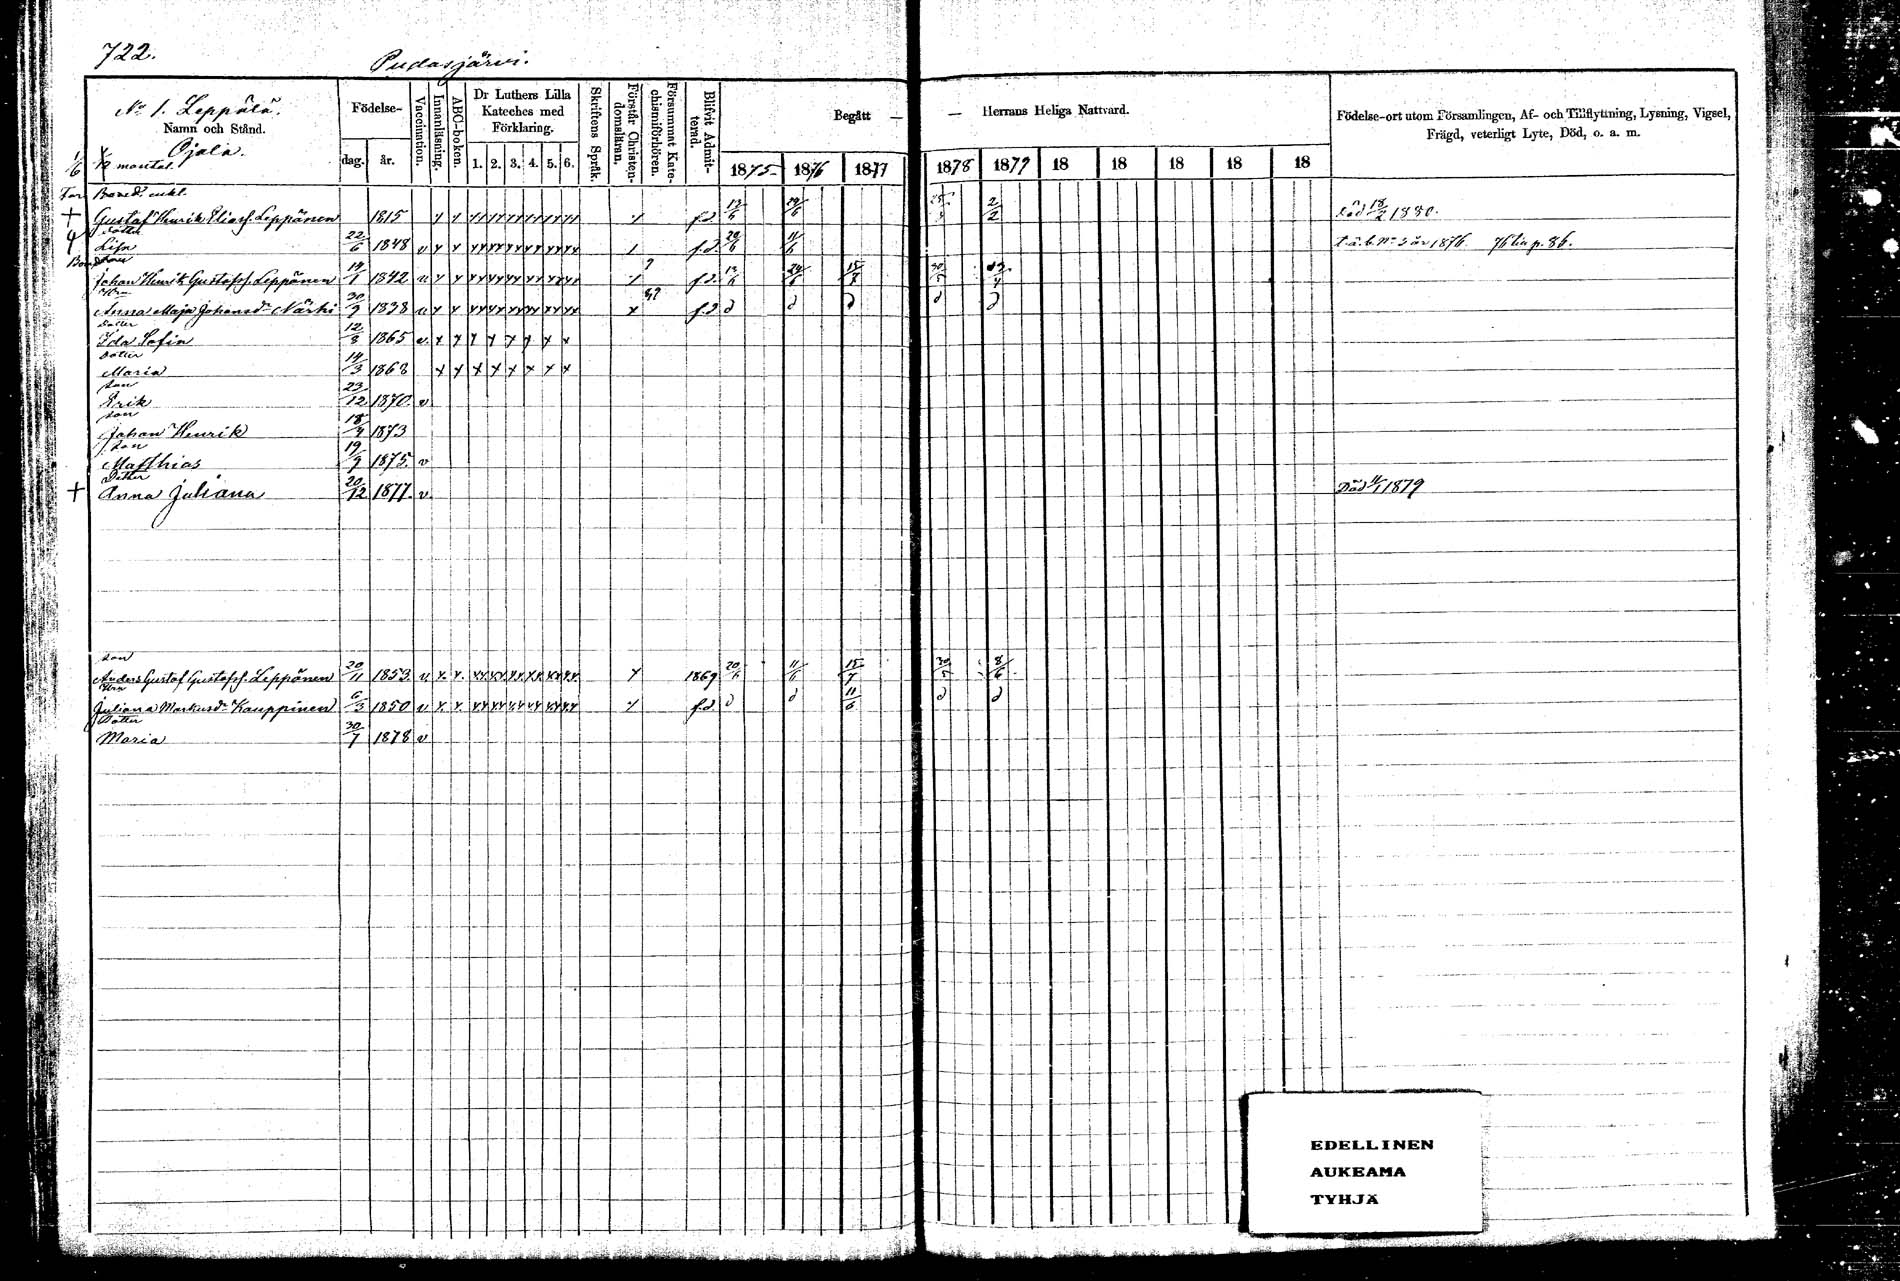 722.
Pudasjärvi.
No 1. Leppälä.
Namn och Stånd.
Ojala.
1/6
mantal.
Födelse-
dag. år.
Vaccination.
Innanläsning.
ABC-boken.
Dr Luthers Lilla
Kateches med
Förklaring.
1. 2. 3. 4. 5. 6.
Skriftens Språk.
Förstår Christendomsläran.
Försummat Katechismiförhören.
Blifvit Admitterad.
Begått — — Herrans Heliga Nattvard.
1875 1876 1877 1878 1879 18 18 18 18 18
Födelse-ort utom Församlingen, Af- och Tillflyttning, Lysning, Vigsel,
Frägd, veterligt Lyte, Död, o. a. m.
† Gustaf Henrik Eliass. Leppänen 1815 x x f.d. Död 18/2 1880.
Dotter
Lisa 22/6 1848 v x x f.d. 20/6 11/6 1876 p. 86.
Johan Henrik Gustafss. Leppänen 14/1 1842 v x x f.d. 15/7
Anna Maja Johansdr Närhi 30/9 1838 v x x f.d. d d d d d
Dotter
Ida Sofia 12/3 1865 v. x x x x x x x x
Dotter
Maria 14/3 1868 x x x x x x x x
son
Erik 23/12 1870. v
son
Johan Henrik 18/4 1873
son
Matthias 19/9 1875. v
Dotter
† Anna Juliana 20/12 1877. v Död 1879
son
Anders Gustaf Gustafss. Leppänen 20/11 1853. v x. x. x 1869 20/6 11/6 15/7 8/6
Juliana Markusdr Kauppinen 6/3 1850 v x. x. f.d d d 11/6 d d
Dotter
Maria 30/7 1878 v
EDELLINEN
AUKEAMA
TYHJÄ